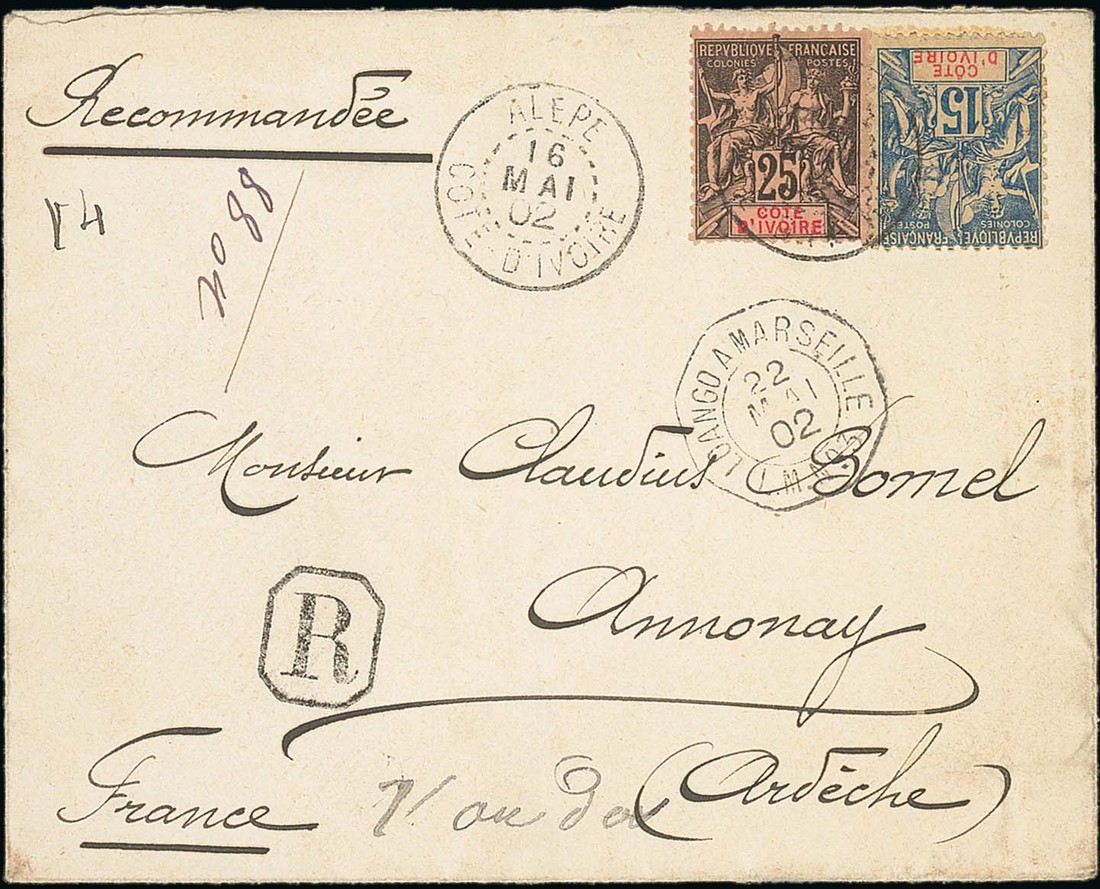 Recommandée
no 88
ALEPE
16
MAI
02
COTE D'IVOIRE
REPVBLIQVE FRANÇAISE
COLONIES POSTES
25
COTE
D'IVOIRE
CÔTE
D'IVOIRE
15
REPVBLIQVE FRANÇAISE
COLONIES POSTES
LOANGO A MARSEILLE
22
MAI
02
Monsieur Claudius Bomel
Annonay
R
(Ardèche)
France